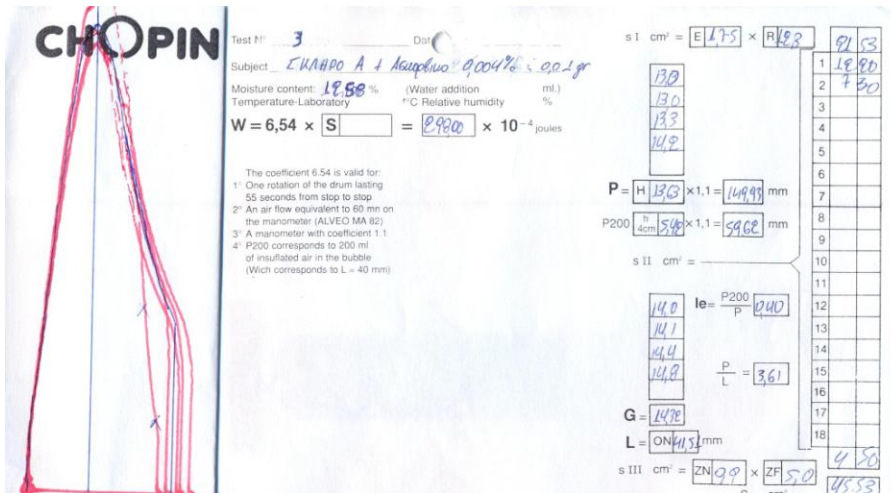 CHOPIN
Test N° 3 Date
Subject ΣΚΛΗΡΟ A + 0,004% : 0,01 gr
Moisture content: 12,58 % (Water addition ml.)
Temperature-Laboratory °C Relative humidity %
W = 6,54 × S = 29800 × 10⁻⁴ joules
The coefficient 6.54 is valid for:
1° One rotation of the drum lasting
55 seconds from stop to stop
2° An air flow equivalent to 60 mn on
the manometer (ALVEO MA 82)
3° A manometer with coefficient 1.1
4° P200 corresponds to 200 ml
of insuflated air in the bubble
(Wich corresponds to L = 40 mm)
s I cm² = E 1,75 × R 12,3
13,0
13,3
14,2
P = H 13,63 ×1,1 = 149,93 mm
P200 h 4cm 5,42 ×1,1 = 59,62 mm
s II cm² =
14,0
14,1
14,4
14,8
Ie= P200 / P 0,40
P / L = 3,61
G = 14,32
L = ON 41,51 mm
s III cm² = ZN 9,9 × ZF 5,0
21 53
1 12 20
2 7 30
3
4
5
6
7
8
9
10
11
12
13
14
15
16
17
18
4 50
45.53